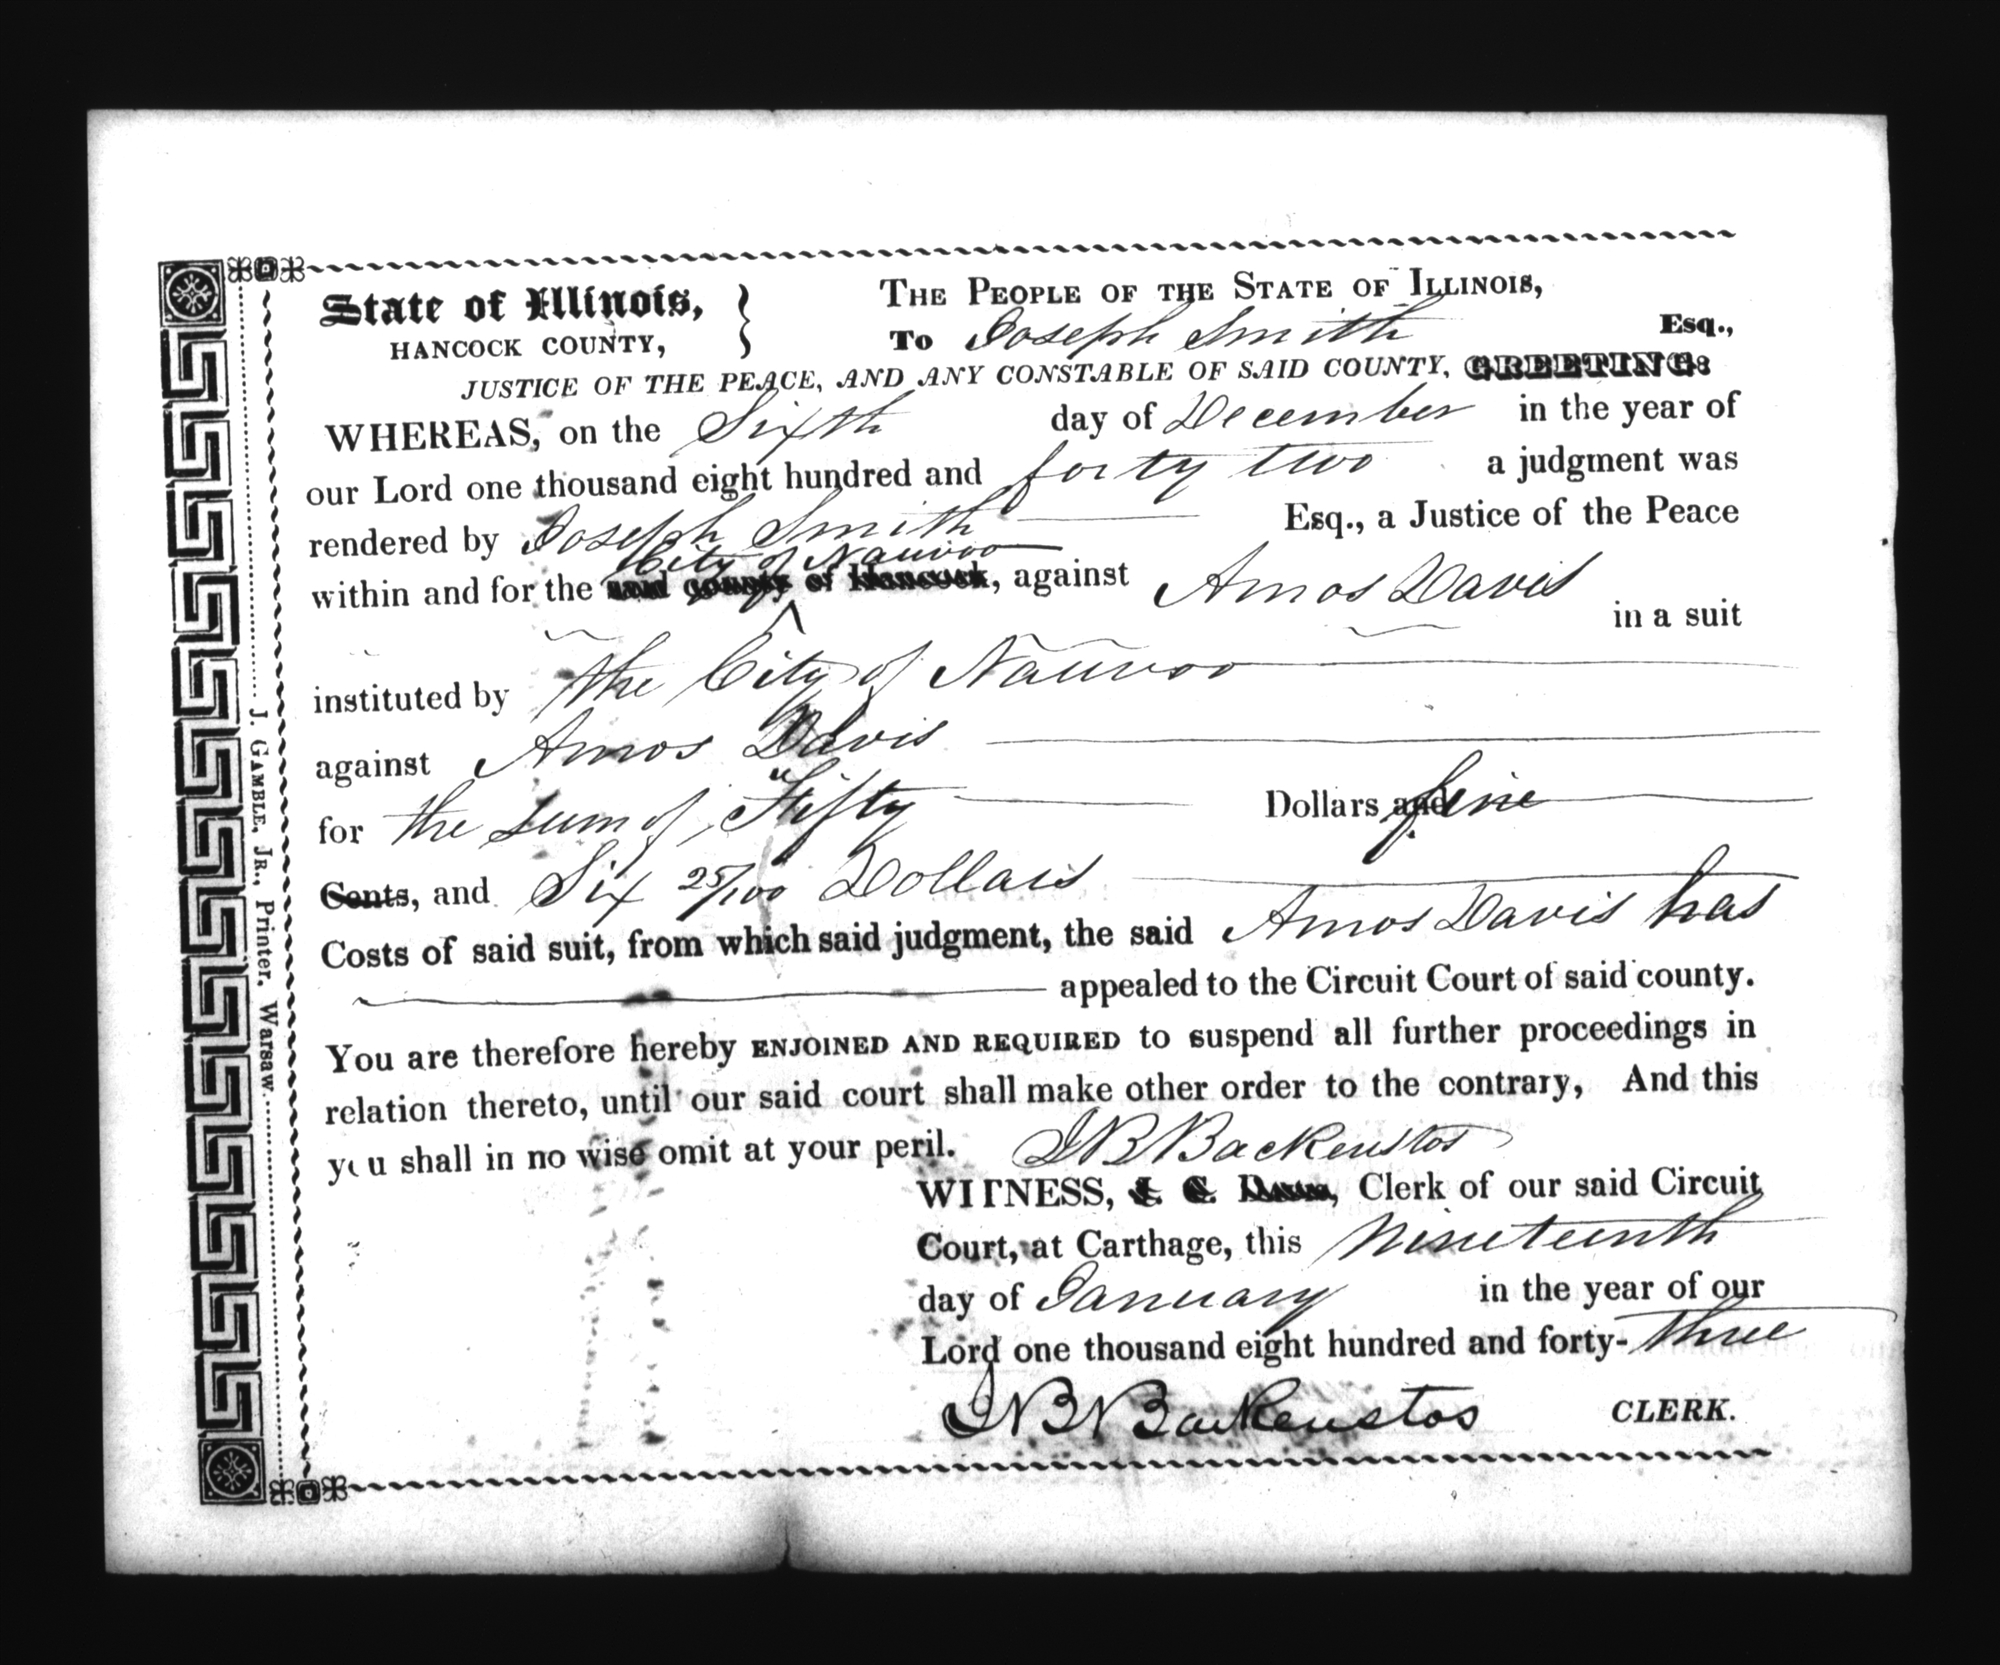 State of Illinois,
HANCOCK COUNTY,
THE PEOPLE OF THE STATE OF ILLINOIS,
To Joseph Smith Esq.,
JUSTICE OF THE PEACE, AND ANY CONSTABLE OF SAID COUNTY, GREETING:
WHEREAS, on the Sixth day of December in the year of
our Lord one thousand eight hundred and forty two a judgment was
rendered by Joseph Smith Esq., a Justice of the Peace
City of Nauvoo
within and for the said county of Hancock, against Amos Davis
in a suit
instituted by the City of Nauvoo
against Amos Davis
for the sum of Fifty Dollars and fine
Cents, and Six 25/100 Dollars
Costs of said suit, from which said judgment, the said Amos Davis has
appealed to the Circuit Court of said county.
You are therefore hereby ENJOINED AND REQUIRED to suspend all further proceedings in
relation thereto, until our said court shall make other order to the contrary, And this
you shall in no wise omit at your peril.
J B Backenstos
WITNESS, Clerk of our said Circuit
Court, at Carthage, this Nineteenth
day of January in the year of our
Lord one thousand eight hundred and forty-three
J B Backenstos CLERK.
J. GAMBLE, JR., Printer, Warsaw.